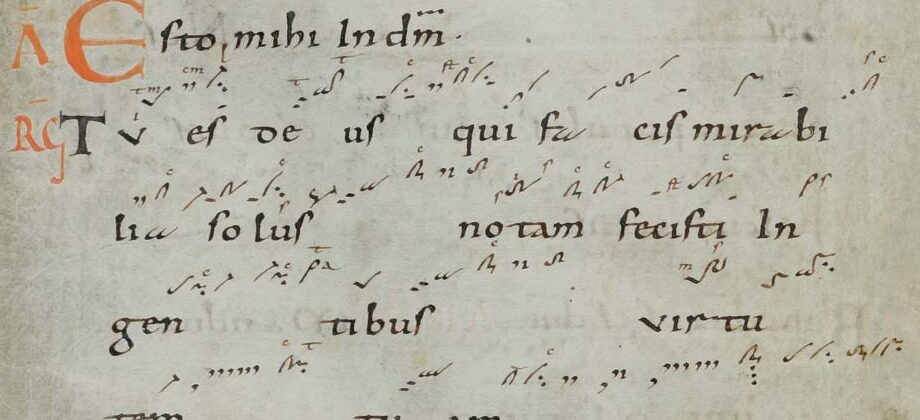 A Esto mihi In dm̄.
RG Tu es de us qui fa cis mirabi
lia solus notam fecisti In
gen tibus virtu
tem tu am